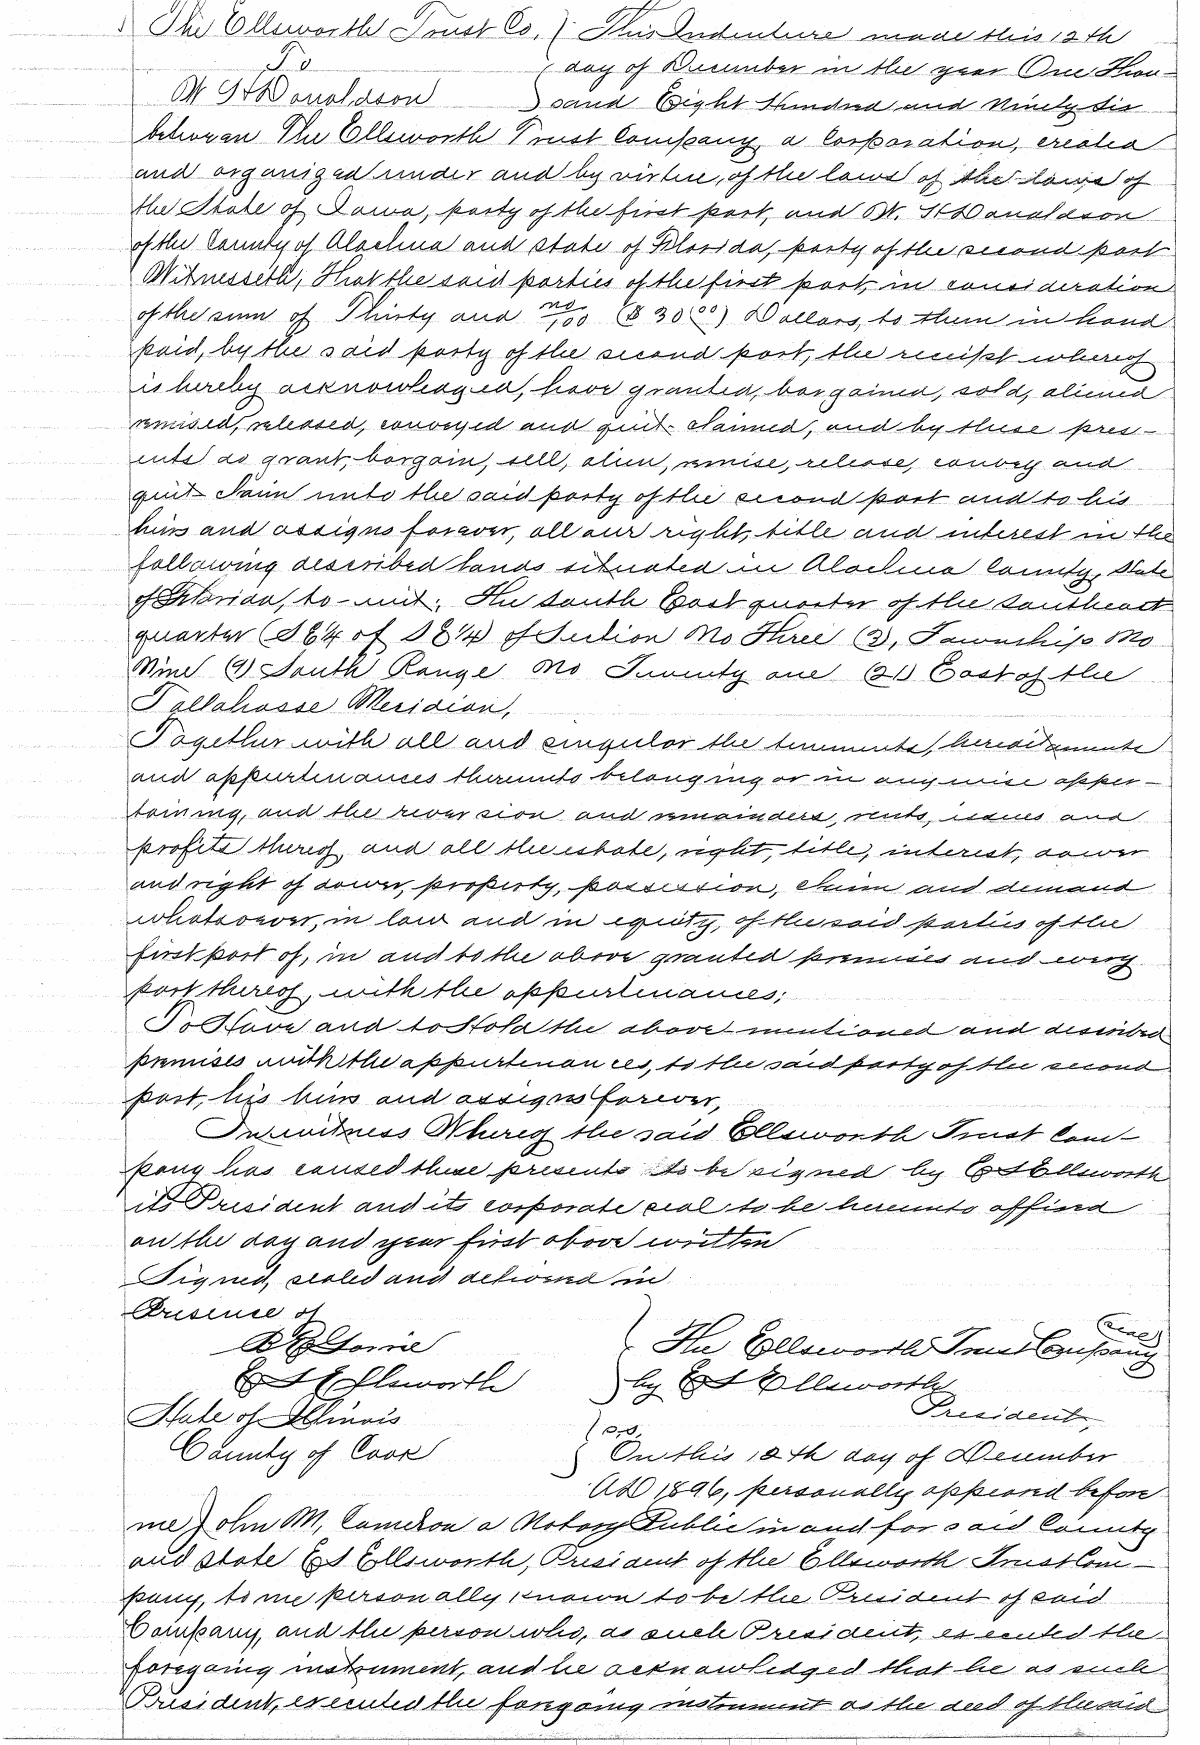 The Ellsworth Trust Co. } This Indenture made this 12th
To } day of December in the year One Thou-
W H Donaldson } sand Eight Hundred and Ninety Six
between The Ellsworth Trust Company, a Corporation, created
and organized under and by virtue, of the laws of the laws of
the State of Iowa, party of the first part, and W. H Donaldson
of the County of Alachua and state of Florida, party of the second part
Witnesseth, That the said parties of the first part, in consideration
of the sum of Thirty and no/100 ($30.00) Dollars, to them in hand
paid, by the said party of the second part, the receipt whereof
is hereby acknowledged, have granted, bargained, sold, aliened
remised, released, conveyed and quit-claimed, and by these pres-
ents do grant, bargain, sell, alien, remise, release, convey and
quit-claim unto the said party of the second part and to his
heirs and assigns forever, all our right, title and interest in the
following described lands situated in Alachua County, State
of Florida, to-wit: The South East quarter of the Southeast
quarter (SE¼ of SE¼) of Section No Three (3), Township No
Nine (9) South Range No Twenty one (21) East of the
Tallahasse Meridian,
Together with all and singular the tenements, hereditaments
and appurtenances thereunto belonging or in any wise apper-
taining, and the reversion and remainders, rents, issues and
profits thereof, and all the estate, right, title, interest, dower
and right of dower, property, possession, claim and demand
whatsoever, in law and in equity, of the said parties of the
first part of, in and to the above granted premises and every
part thereof, with the appurtenances;
To Have and to Hold the above mentioned and described
premises with the appurtenances, to the said party of the second
part, his heirs and assigns forever,
In witness Whereof the said Ellsworth Trust Com-
pany has caused these presents to be signed by E S Ellsworth
its President and its corporate seal to be hereunto affixed
on the day and year first above written
Signed, sealed and delivered in
Presence of
The Ellsworth Trust Company (seal)
E S Ellsworth } by E S Ellsworth
President,
State of Illinois } ss,
County of Cook } On this 12th day of December
AD 1896, personally appeared before
me John M, Cameron a Notary Public in and for said County
and state E S Ellsworth, President of the Ellsworth Trust Com-
pany, to me personally known to be the President of said
Company, and the person who, as such President, executed the
foregoing instrument, and he acknowledged that he as such
President, executed the foregoing instrument as the deed of the said